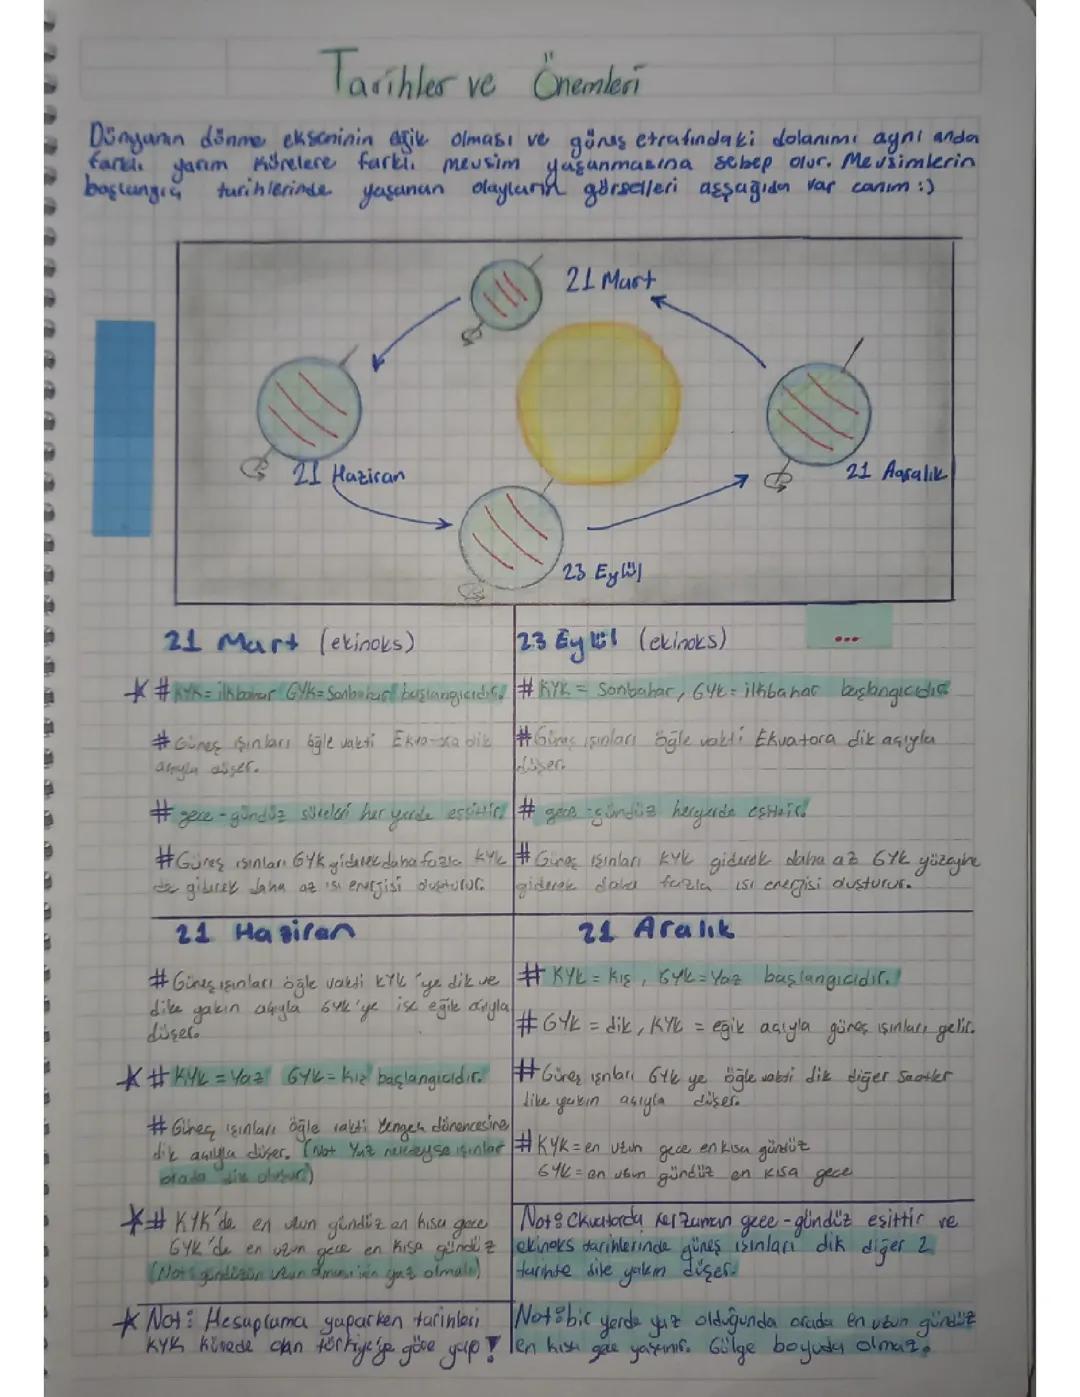 Tarihler ve Önemleri
Dünyanın dönme ekseninin eğik olması ve güneş etrafındaki dolanımı aynı anda
farklı yarım kürelere farklı mevsim yaşanmasına sebep olur. Mevsimlerin
başlangıç tarihlerinde yaşanan olayların görselleri aşşağıda var canım :)
21 Mart
21 Haziran
21 Aralık
23 Eylül
21 Mart (ekinoks)
# KYK= ilkbahar GYK= Sonbahar başlangıcıdır.
# Güneş ışınları öğle vakti Ekvatora dik
açıyla düşer.
# gece-gündüz süreleri her yerde eşittir.
# Güneş ışınları GYK giderek daha fazla KYK
de giderek daha az ısı enerjisi oluşturur.
23 Eylül (ekinoks)
...
# KYK = Sonbahar, GYK = ilkbahar başlangıcıdır.
# Güneş ışınları öğle vakti Ekvatora dik açıyla
düşer.
# gece-gündüz heryerde eşittir.
# Güneş ışınları KYK giderek daha az GYK yüzeyine
giderek daha fazla ısı enerjisi oluşturur.
21 Haziran
# Güneş ışınları öğle vakti KYK'ye dik ve
dike yakın açıyla GYK'ye ise eğik açıyla
düşer.
# KYK = Yaz GYK = Kış başlangıcıdır.
# Güneş ışınları öğle vakti Yengeç dönencesine
dik açıyla düşer. (Not Yaz neredeyse ışınlar
orada dik olur)
# KYK'de en uzun gündüz en kısa gece
GYK'de en uzun gece en kısa gündüz
(Not: gündüzün uzun olması için yaz olmalı)
Not: Hesaplama yaparken tarihleri
KYK kürede olan türkiye'ye göre yap!
21 Aralık
# KYK = kış, GYK = Yaz başlangıcıdır.
# GYK = dik, KYK = eğik açıyla güneş ışınları gelir.
# Güneş ışınları GYK ye öğle vakti dik diğer saatler
dike yakın açıyla düşer.
# KYK = en uzun gece en kısa gündüz
GYK = en uzun gündüz en kısa gece
Not: Ekvatorda her zaman gece-gündüz eşittir ve
ekinoks tarihlerinde güneş ışınları dik diğer 2
tarihte dike yakın düşer.
Not: bir yerde yaz olduğunda orada en uzun gündüz
en kısa gece yaşanır. Gölge boyuda olmaz.